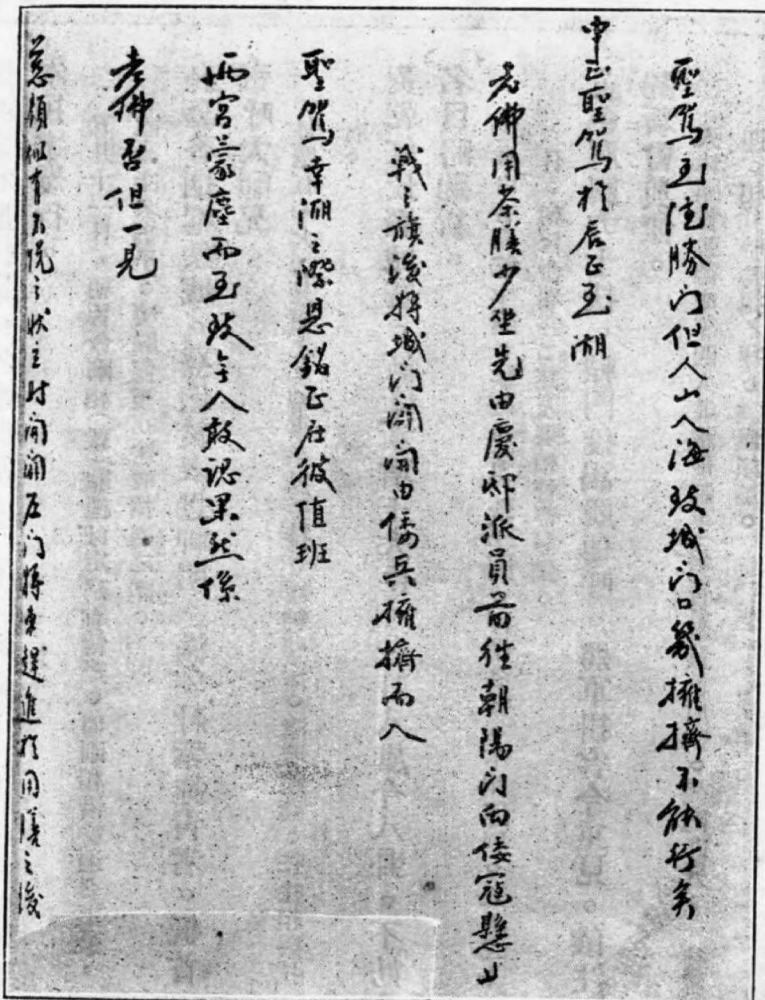 聖駕至德勝門但人山人海致城門口幾擁擠不能行矣
申正聖駕於辰正至湖
老佛用茶膳少坐先由慶邸派員前往朝陽門向倭寇懸止
戰之旗後將城門開開由倭兵擁擠而入
聖駕幸湖之際恩銘正在彼值班
兩宮蒙塵而至致無人敢認果然係
老佛爺但一見
慈顏似有不悅之狀立時開開左門將車趕進於用膳之後